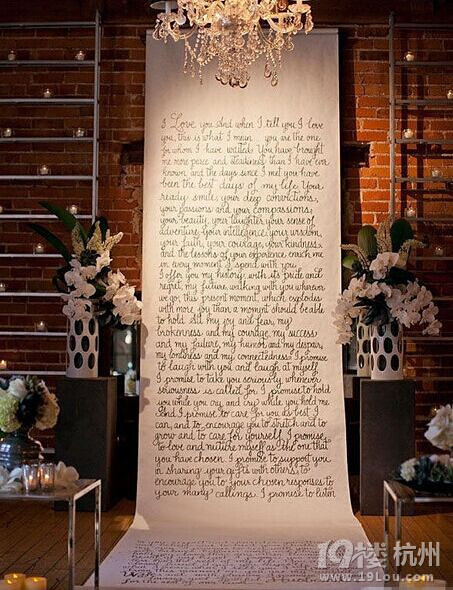 I Love you. And when I tell you I love
you, this is what I mean you are the one
for whom I have waited. You have brought
me more peace and steadiness than I have ever
known, and the days since I met you have
been the best days of my life. Your
ready smile, your deep convictions,
your passions and your compassions,
your beauty, your laughter, your sense of
adventure, your intelligence, your wisdom,
your faith, your courage, your kindness,
and the lessons of your experience, enrich me
in every moment I spend with you.
I offer you my history, with its pride and
regret, my future, walking with you wherever
we go, this present moment, which explodes
with more joy than a moment should be able
to hold. All my joy and fear, my
brokenness and my courage, my success
and my failure, my humor and my despair,
my loneliness and my connectedness. I promise
to laugh with you and laugh at myself.
I promise to take you seriously whenever
seriousness is called for. I promise to hold
you while you cry, and cry while you hold me.
And I promise to care for you as best I
can, and to encourage you to stretch and to
grow and to care for yourself. I promise
to love and nurture myself as the one that
you have chosen. I promise to support you
in sharing your gifts with others, to
encourage you to your chosen responses to
your many callings. I promise to listen
19楼 杭州
www.19lou.com